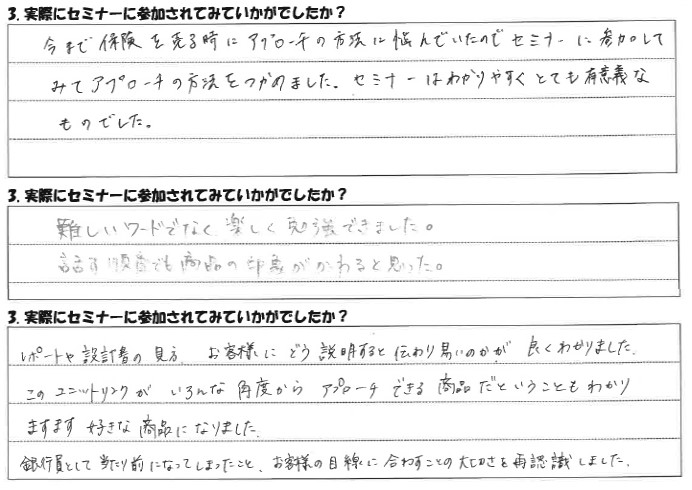 3. 実際にセミナーに参加されてみていかがでしたか？
今まで保険を売る時にアプローチの方法に悩んでいたのでセミナーに参加して
みてアプローチの方法をつかめました。セミナーはわかりやすくとても有意義な
ものでした。
3. 実際にセミナーに参加されてみていかがでしたか？
難しいワードでなく、楽しく勉強できました。
話す順番でも商品の印象がかわると思った。
3. 実際にセミナーに参加されてみていかがでしたか？
レポートや設計書の見方、お客様にどう説明すると伝わり易いのかが良くわかりました。
このユニットリンクがいろんな角度からアプローチできる商品だということもわかり
ますます好きな商品になりました。
銀行員として当たり前になってしまったこと、お客様の目線に合わすことの大切さを再認識しました。